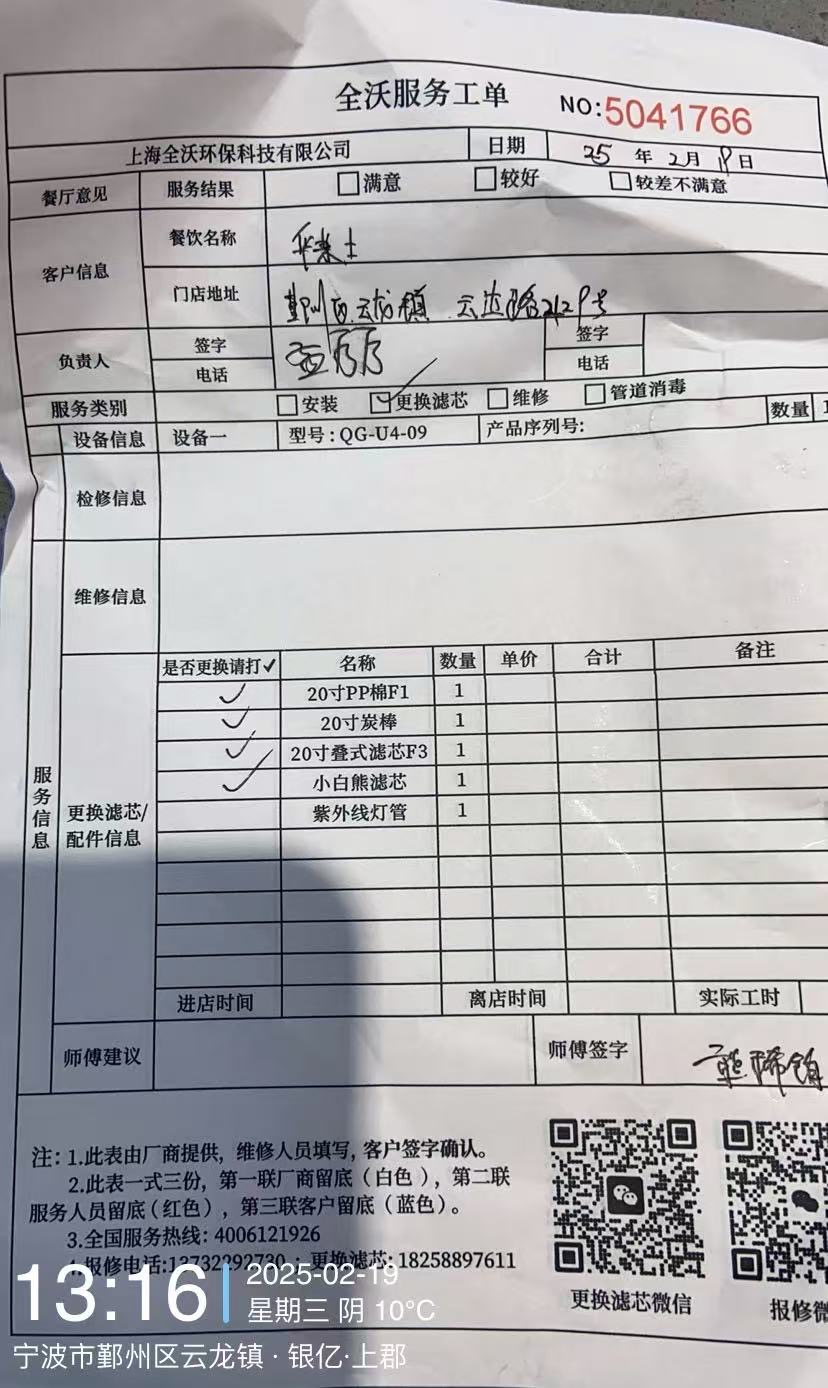 全沃服务工单 NO:5041766
上海全沃环保科技有限公司 日期 25 年 2 月 19 日
餐厅意见 服务结果 □满意 □较好 □较差不满意
客户信息 餐饮名称 华莱士
门店地址 鄞州区云龙镇 云达路2129号
负责人 签字 签字
电话 电话
服务类别 □安装 ☑更换滤芯 □维修 □管道消毒
设备信息 设备一 型号:QG-U4-09 产品序列号: 数量
检修信息
维修信息
服务信息
更换滤芯/配件信息
是否更换请打✓ 名称 数量 单价 合计 备注
✓ 20寸PP棉F1 1
✓ 20寸炭棒 1
✓ 20寸叠式滤芯F3 1
✓ 小白熊滤芯 1
紫外线灯管 1
进店时间 离店时间 实际工时
师傅建议 师傅签字
注: 1.此表由厂商提供，维修人员填写，客户签字确认。
2.此表一式三份，第一联厂商留底（白色），第二联
服务人员留底（红色），第三联客户留底（蓝色）。
3.全国服务热线: 4006121926
报修电话:13732292730 ; 更换滤芯:18258897611
更换滤芯微信 报修微
13:16 2025-02-19
星期三 阴 10°C
宁波市鄞州区云龙镇·银亿·上郡